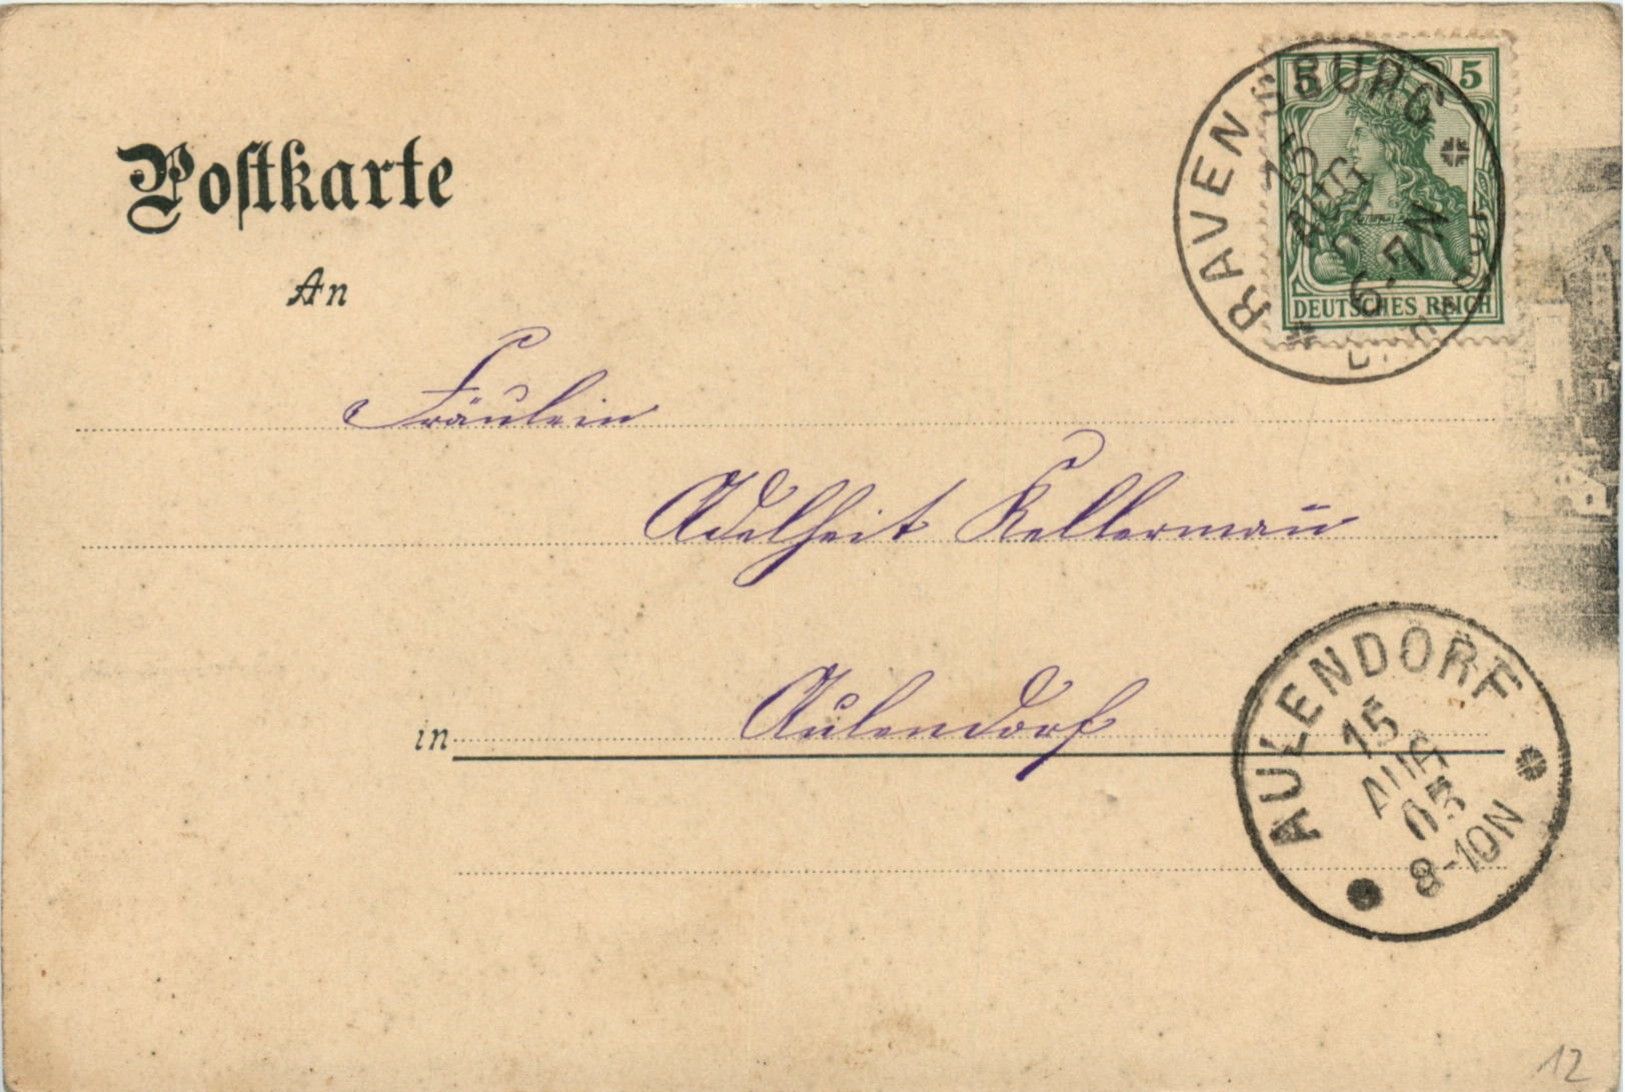 Postkarte
An
Fräulein
Adelheit Kellermañ
in Aulendorf
5 5
DEUTSCHES REICH
RAVENSBURG
15
AUG
6-7N
AULENDORF
15
AUG
05
8-10N
12